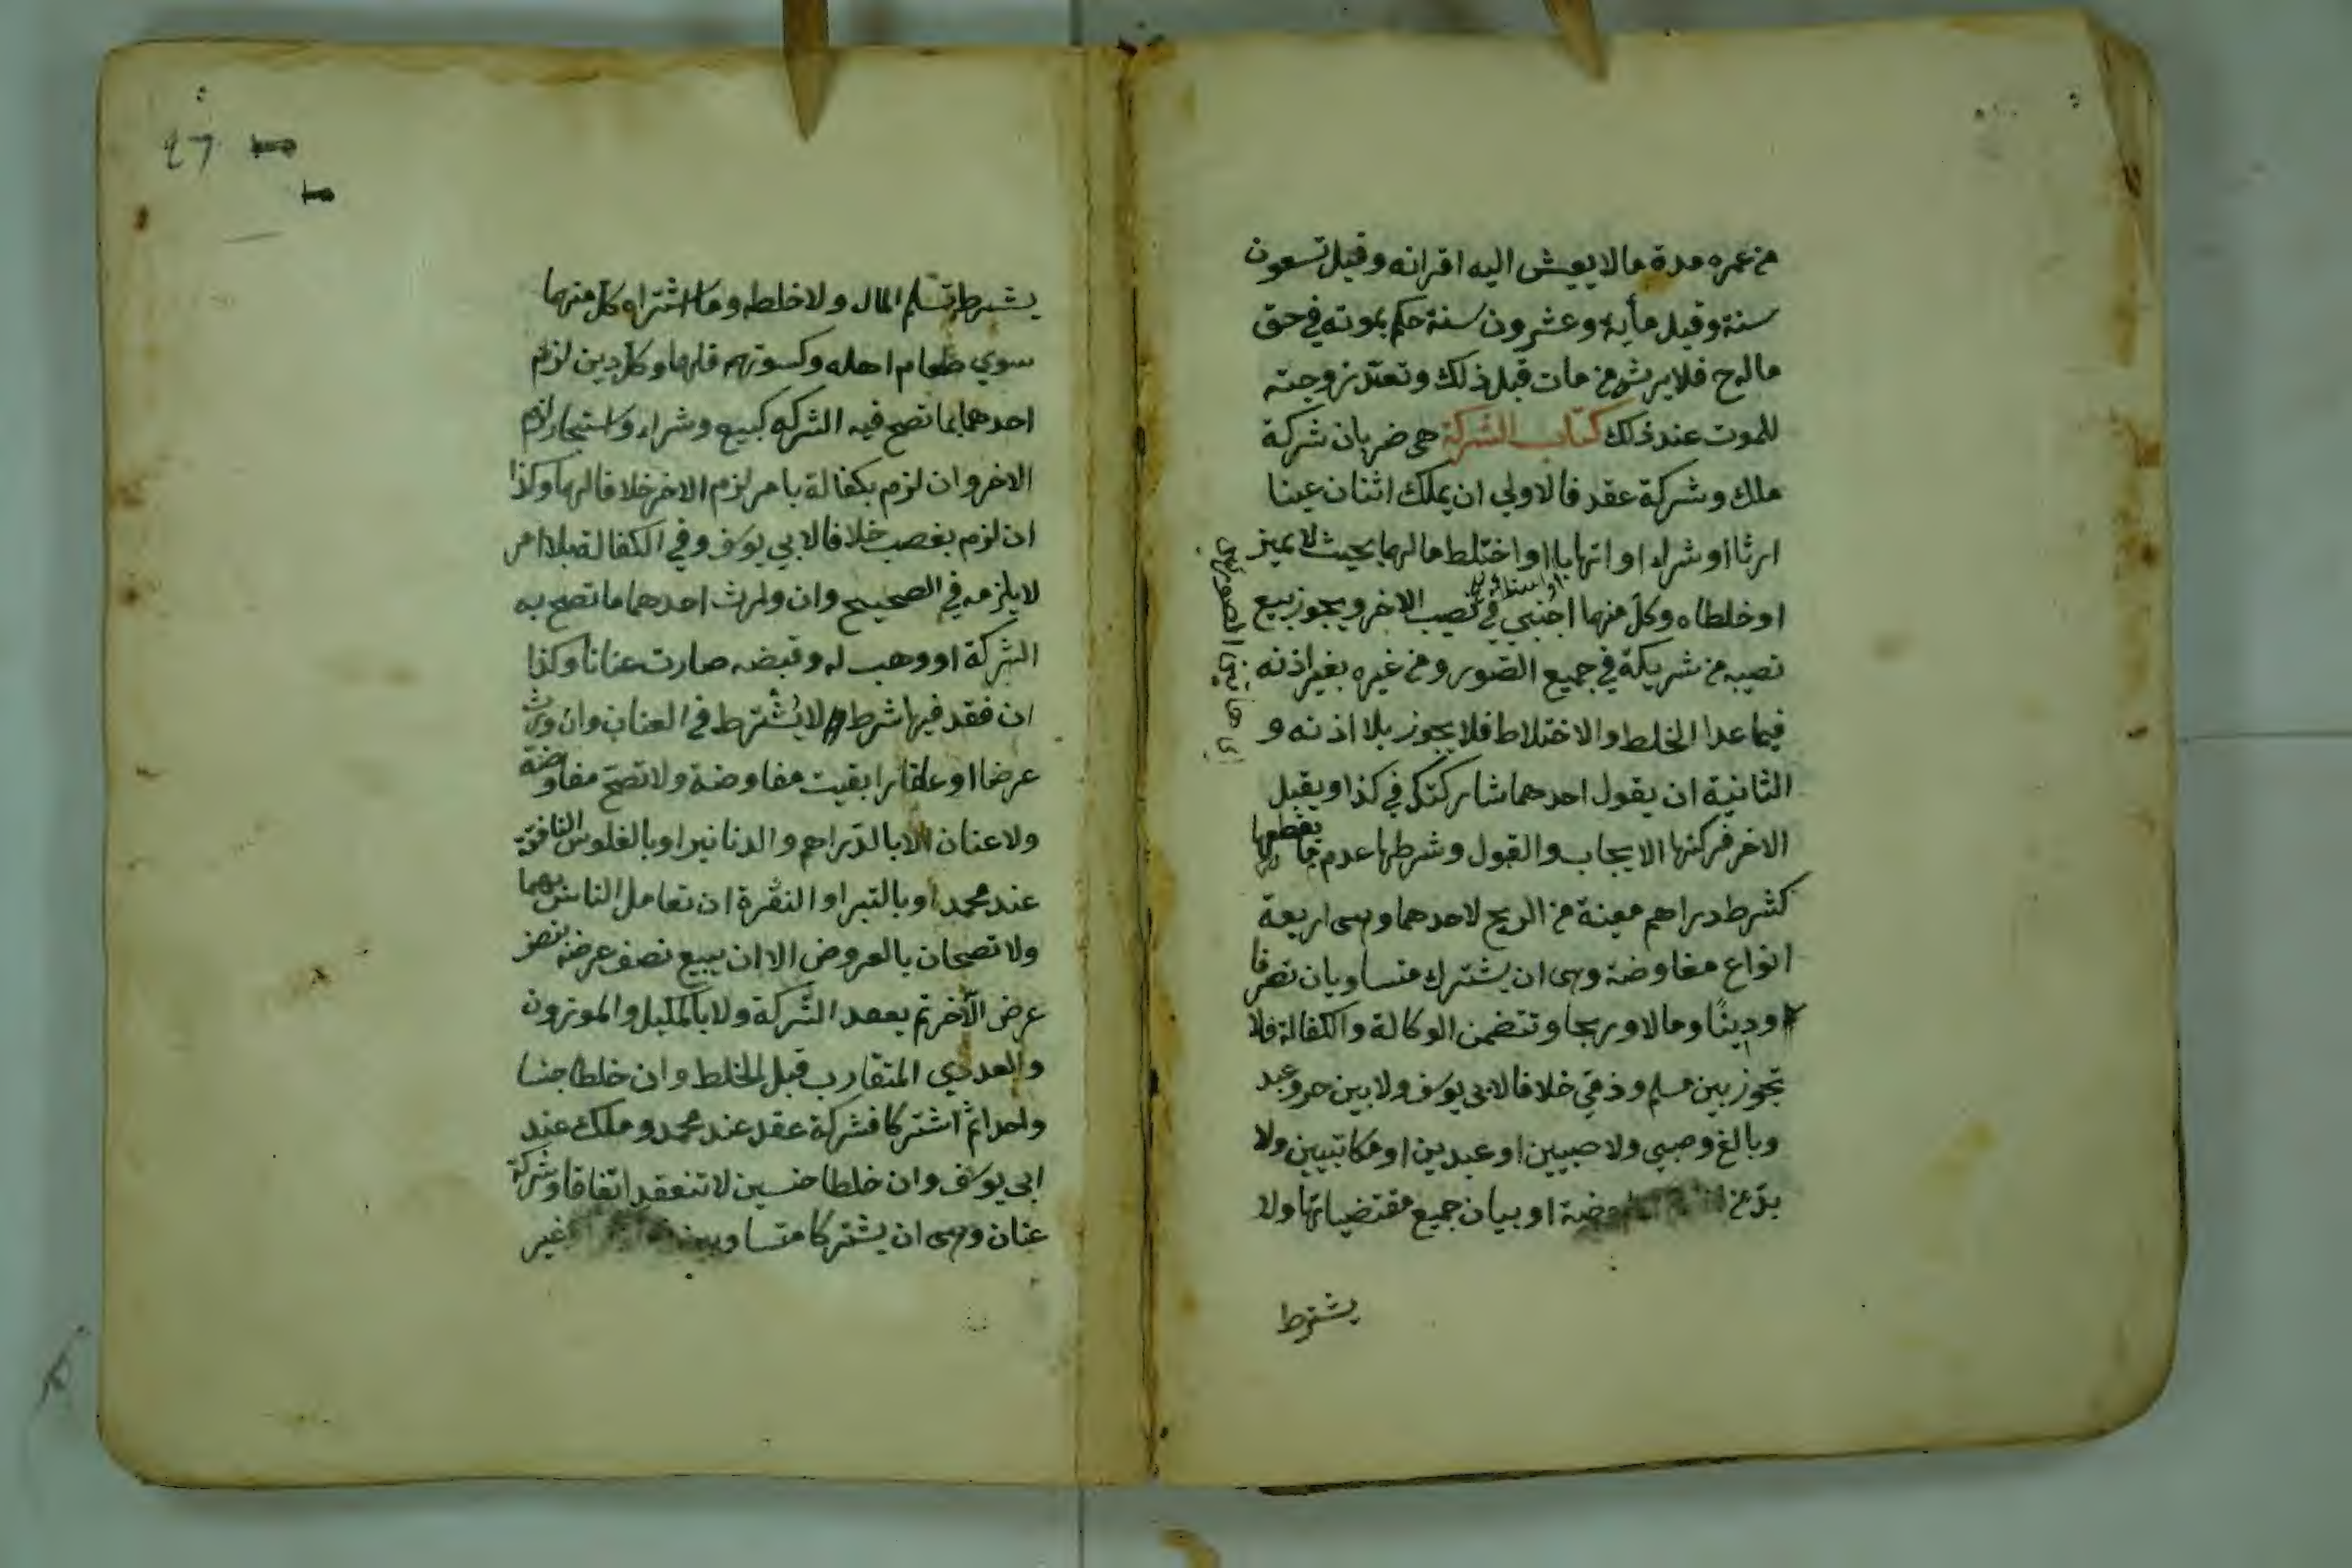 من عمره مدة ما لا يعيش اليه اقرانه وقيل تسعون
سنة وقيل مأية وعشرون سنة حكم بموته في حق
ماله ح فلا يرثه من مات قبل ذلك وتعتد زوجته
للموت عند ذلك كتاب الشركة هي ضربان شركة
ملك وشركة عقد فالاولي ان يملك اثنان عينا
ارثا او شراء او اتهابا او اختلط مالهما بحيث لا يميز
او خلطاه وكل منهما اجنبي في نصيب الاخر ويجوز بيع
نصيبه من شريكه في جميع الصور ومن غيره بغير اذنه
فيما عدا الخلط والاختلاط فلا يجوز بلا اذنه و
الثانية ان يقول احدهما شاركتك في كذا ويقبل
الاخر فركنها الايجاب والقبول وشرطها عدم ما يقطعها
كشرط دراهم معينة من الربح لاحدهما وهي اربعة
انواع مفاوضة وهي ان يشترك متساويان تصرفا
ودينًا ومالا وربحا وتتضمن الوكالة والكفالة فلا
تجوز بين مسلم وذمي خلافا لابي يوسف ولا بين حر وعبد
وبالغ وصبي ولا صبيين او عبدين او مكاتبين ولا
بدّ من اوضة او بيان جميع مقتضياتها ولا
يشترط
٤٦
يشترط تسلم المال ولا خلطه وما اشتراه كل منهما
سوي طعام اهله وكسوتهم فلهما وكل دين لزم
احدهما بما تصح فيه الشركه كبيع وشراء واستيجار لزم
الاخر وان لزم بكفالة بامر لزم الاخر خلافا لهما وكذا
ان لزم بغصب خلافا لابي يوسف وفي الكفالة بلا امر
لا يلزمه في الصحيح وان ورث احدهما ما تصح به
الشركة او وهب له وقبضه صارت عنانا وكذا
ان فقد فيها شرط لا يُشترط في العنان وان ورث
عرضا او عقارا بقيت مفاوضة ولا تصح مفاوضة
ولا عنان الا بالدراهم والدنانير او بالفلوس النافقة
عند محمد او بالتبر او النقرة ان تعامل الناس بهما
ولا تصحان بالعروض الا ان يبيع نصف عرضه بنصف
عرض الآخر ثم يعقد الشركة ولا بالمكيل والموزون
والعددي المتقارب قبل الخلط وان خلطا جنسا
واحدا ثم اشتركا فشركة عقد عند محمد وملك عند
ابي يوسف وان خلطا جنسين لا تنعقد اتفاقا وشركة
عنان وهي ان يشتركا متساويين غير